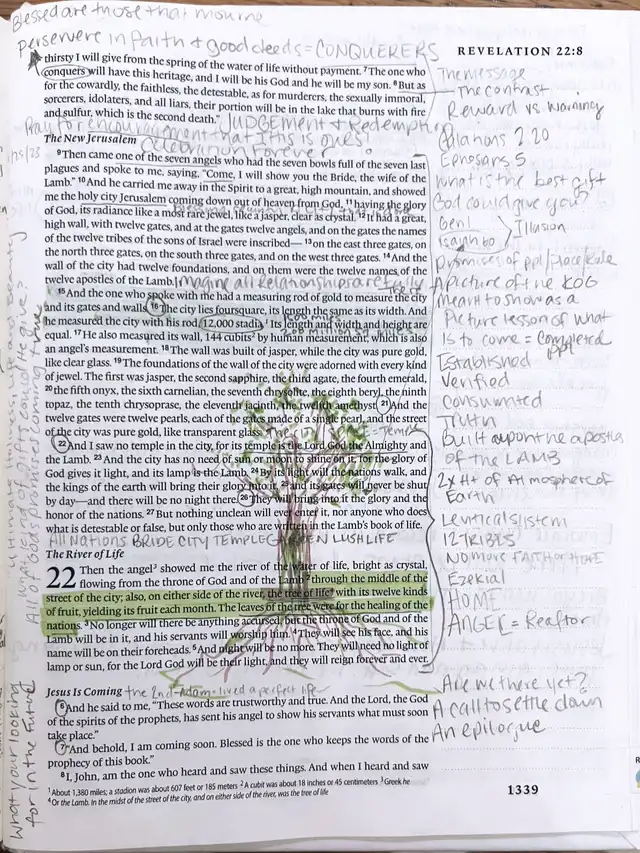 Blessed are those that mourne
persevere in faith + good deeds = CONQUERERS
REVELATION 22:8
thirsty I will give from the spring of the water of life without payment. 7 The one who
conquers will have this heritage, and I will be his God and he will be my son. 8 But as
for the cowardly, the faithless, the detestable, as for murderers, the sexually immoral,
sorcerers, idolaters, and all liars, their portion will be in the lake that burns with fire
and sulfur, which is the second death."
JUDGEMENT + Redemption
Pray for encouragement that this is ours!
Celebration Forever
The New Jerusalem
9 Then came one of the seven angels who had the seven bowls full of the seven last
plagues and spoke to me, saying, "Come, I will show you the Bride, the wife of the
Lamb." 10 And he carried me away in the Spirit to a great, high mountain, and showed
me the holy city Jerusalem coming down out of heaven from God, 11 having the glory
of God, its radiance like a most rare jewel, like a jasper, clear as crystal. 12 It had a great,
high wall, with twelve gates, and at the gates twelve angels, and on the gates the names
of the twelve tribes of the sons of Israel were inscribed— 13 on the east three gates, on
the north three gates, on the south three gates, and on the west three gates. 14 And the
wall of the city had twelve foundations, and on them were the twelve names of the
twelve apostles of the Lamb.
Imagine all Relationships are fully
15 And the one who spoke with me had a measuring rod of gold to measure the city
and its gates and walls. 16 The city lies foursquare, its length the same as its width. And
he measured the city with his rod, 12,000 stadia. 1 Its length and width and height are
equal. 17 He also measured its wall, 144 cubits 2 by human measurement, which is also
an angel's measurement. 18 The wall was built of jasper, while the city was pure gold,
like clear glass. 19 The foundations of the wall of the city were adorned with every kind
of jewel. The first was jasper, the second sapphire, the third agate, the fourth emerald,
20 the fifth onyx, the sixth carnelian, the seventh chrysolite, the eighth beryl, the ninth
topaz, the tenth chrysoprase, the eleventh jacinth, the twelfth amethyst. 21 And the
twelve gates were twelve pearls, each of the gates made of a single pearl, and the street
of the city was pure gold, like transparent glass.
22 And I saw no temple in the city, for its temple is the Lord God the Almighty and
the Lamb. 23 And the city has no need of sun or moon to shine on it, for the glory of
God gives it light, and its lamp is the Lamb. 24 By its light will the nations walk, and
the kings of the earth will bring their glory into it, 25 and its gates will never be shut
by day—and there will be no night there. 26 They will bring into it the glory and the
honor of the nations. 27 But nothing unclean will ever enter it, nor anyone who does
what is detestable or false, but only those who are written in the Lamb's book of life.
All Nations BRIDE CITY TEMPLE GARDEN LUSH LIFE
The River of Life
22 Then the angel 3 showed me the river of the water of life, bright as crystal,
flowing from the throne of God and of the Lamb 2 through the middle of the
street of the city; also, on either side of the river, the tree of life 4 with its twelve kinds
of fruit, yielding its fruit each month. The leaves of the tree were for the healing of the
nations. 3 No longer will there be anything accursed, but the throne of God and of the
Lamb will be in it, and his servants will worship him. 4 They will see his face, and his
name will be on their foreheads. 5 And night will be no more. They will need no light of
lamp or sun, for the Lord God will be their light, and they will reign forever and ever.
Jesus Is Coming
the 2nd Adam - lived a perfect life
6 And he said to me, "These words are trustworthy and true. And the Lord, the God
of the spirits of the prophets, has sent his angel to show his servants what must soon
take place."
7 "And behold, I am coming soon. Blessed is the one who keeps the words of the
prophecy of this book."
8 I, John, am the one who heard and saw these things. And when I heard and saw
1 About 1,380 miles; a stadion was about 607 feet or 185 meters 2 A cubit was about 18 inches or 45 centimeters 3 Greek he
4 Or the Lamb. In the midst of the street of the city, and on either side of the river, was the tree of life
The message
The contrast
Reward vs. warning
Ephesians 5
What is the best gift
God could give you?
Gen 1
Isaiah 60
Illusion
Promises of ppl/place/rule
A picture of the KOG
meant to show as a
Picture lesson of what
is to come = completed
Established
Verified
Consumated
Truth
Built upon the apostles
OF the LAMB
2x Ht of Atmosphere of
Earth
12 TRIBES
NO MORE FAITH or HOPE
Ezekial
HOME
ANGEL = Realtor
Are we there yet?
A call to settle down
An epilogue
1339
What your looking
for in the future